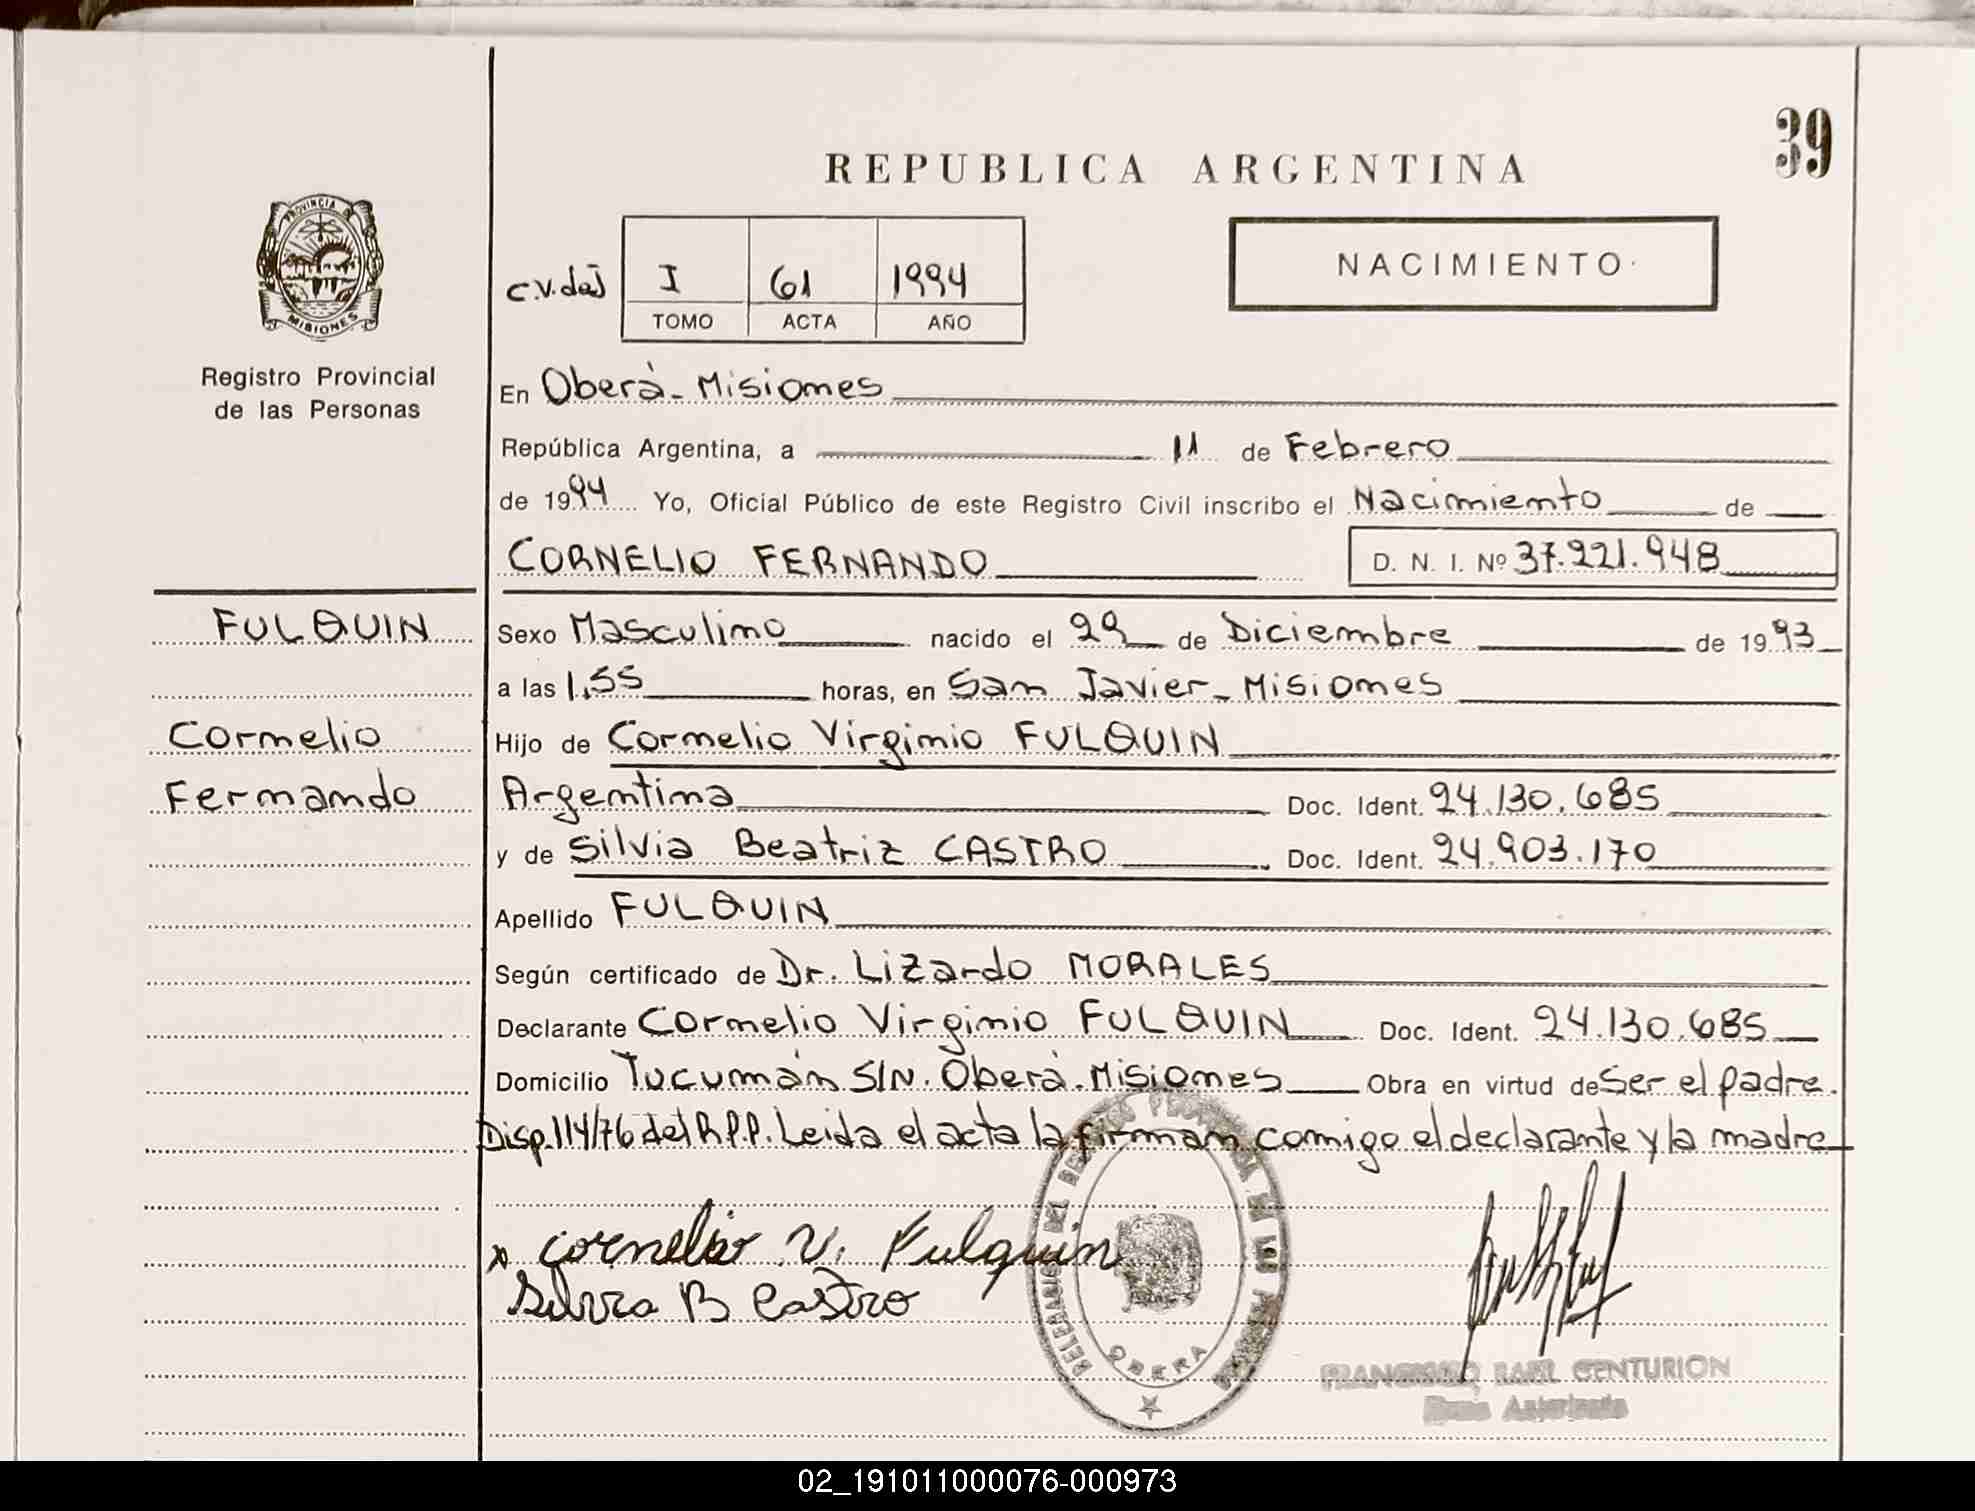 39
REPUBLICA ARGENTINA
PROVINCIA D
MISIONES
Registro Provincial
de las Personas
C.V.daJ
I 61 1994
TOMO ACTA AÑO
NACIMIENTO
En Oberà - Misiones
República Argentina, a 11 de Febrero
de 1994 Yo, Oficial Público de este Registro Civil inscribo el Nacimiento de
CORNELIO FERNANDO D. N. I. Nº 37.221.948
FULQUIN
Cornelio
Fernando
Sexo Masculino nacido el 29 de Diciembre de 1993
a las 1,55 horas, en San Javier - Misiones
Hijo de Cornelio Virginio FULQUIN
Argentina Doc. Ident. 24.130.685
y de Silvia Beatriz CASTRO Doc. Ident. 24.903.170
Apellido FULQUIN
Según certificado de Dr. Lizardo MORALES
Declarante Cornelio Virginio FULQUIN Doc. Ident. 24.130.685
Domicilio Tucumán S/N. Oberà. Misiones Obra en virtud de Ser el padre.
Disp. 114/76 del R.P.P. Leida el acta la firman comigo el declarante y la madre
x Cornelio V. Fulquin
Silvia B Castro
OBERA
CENTURION
02_191011000076-000973